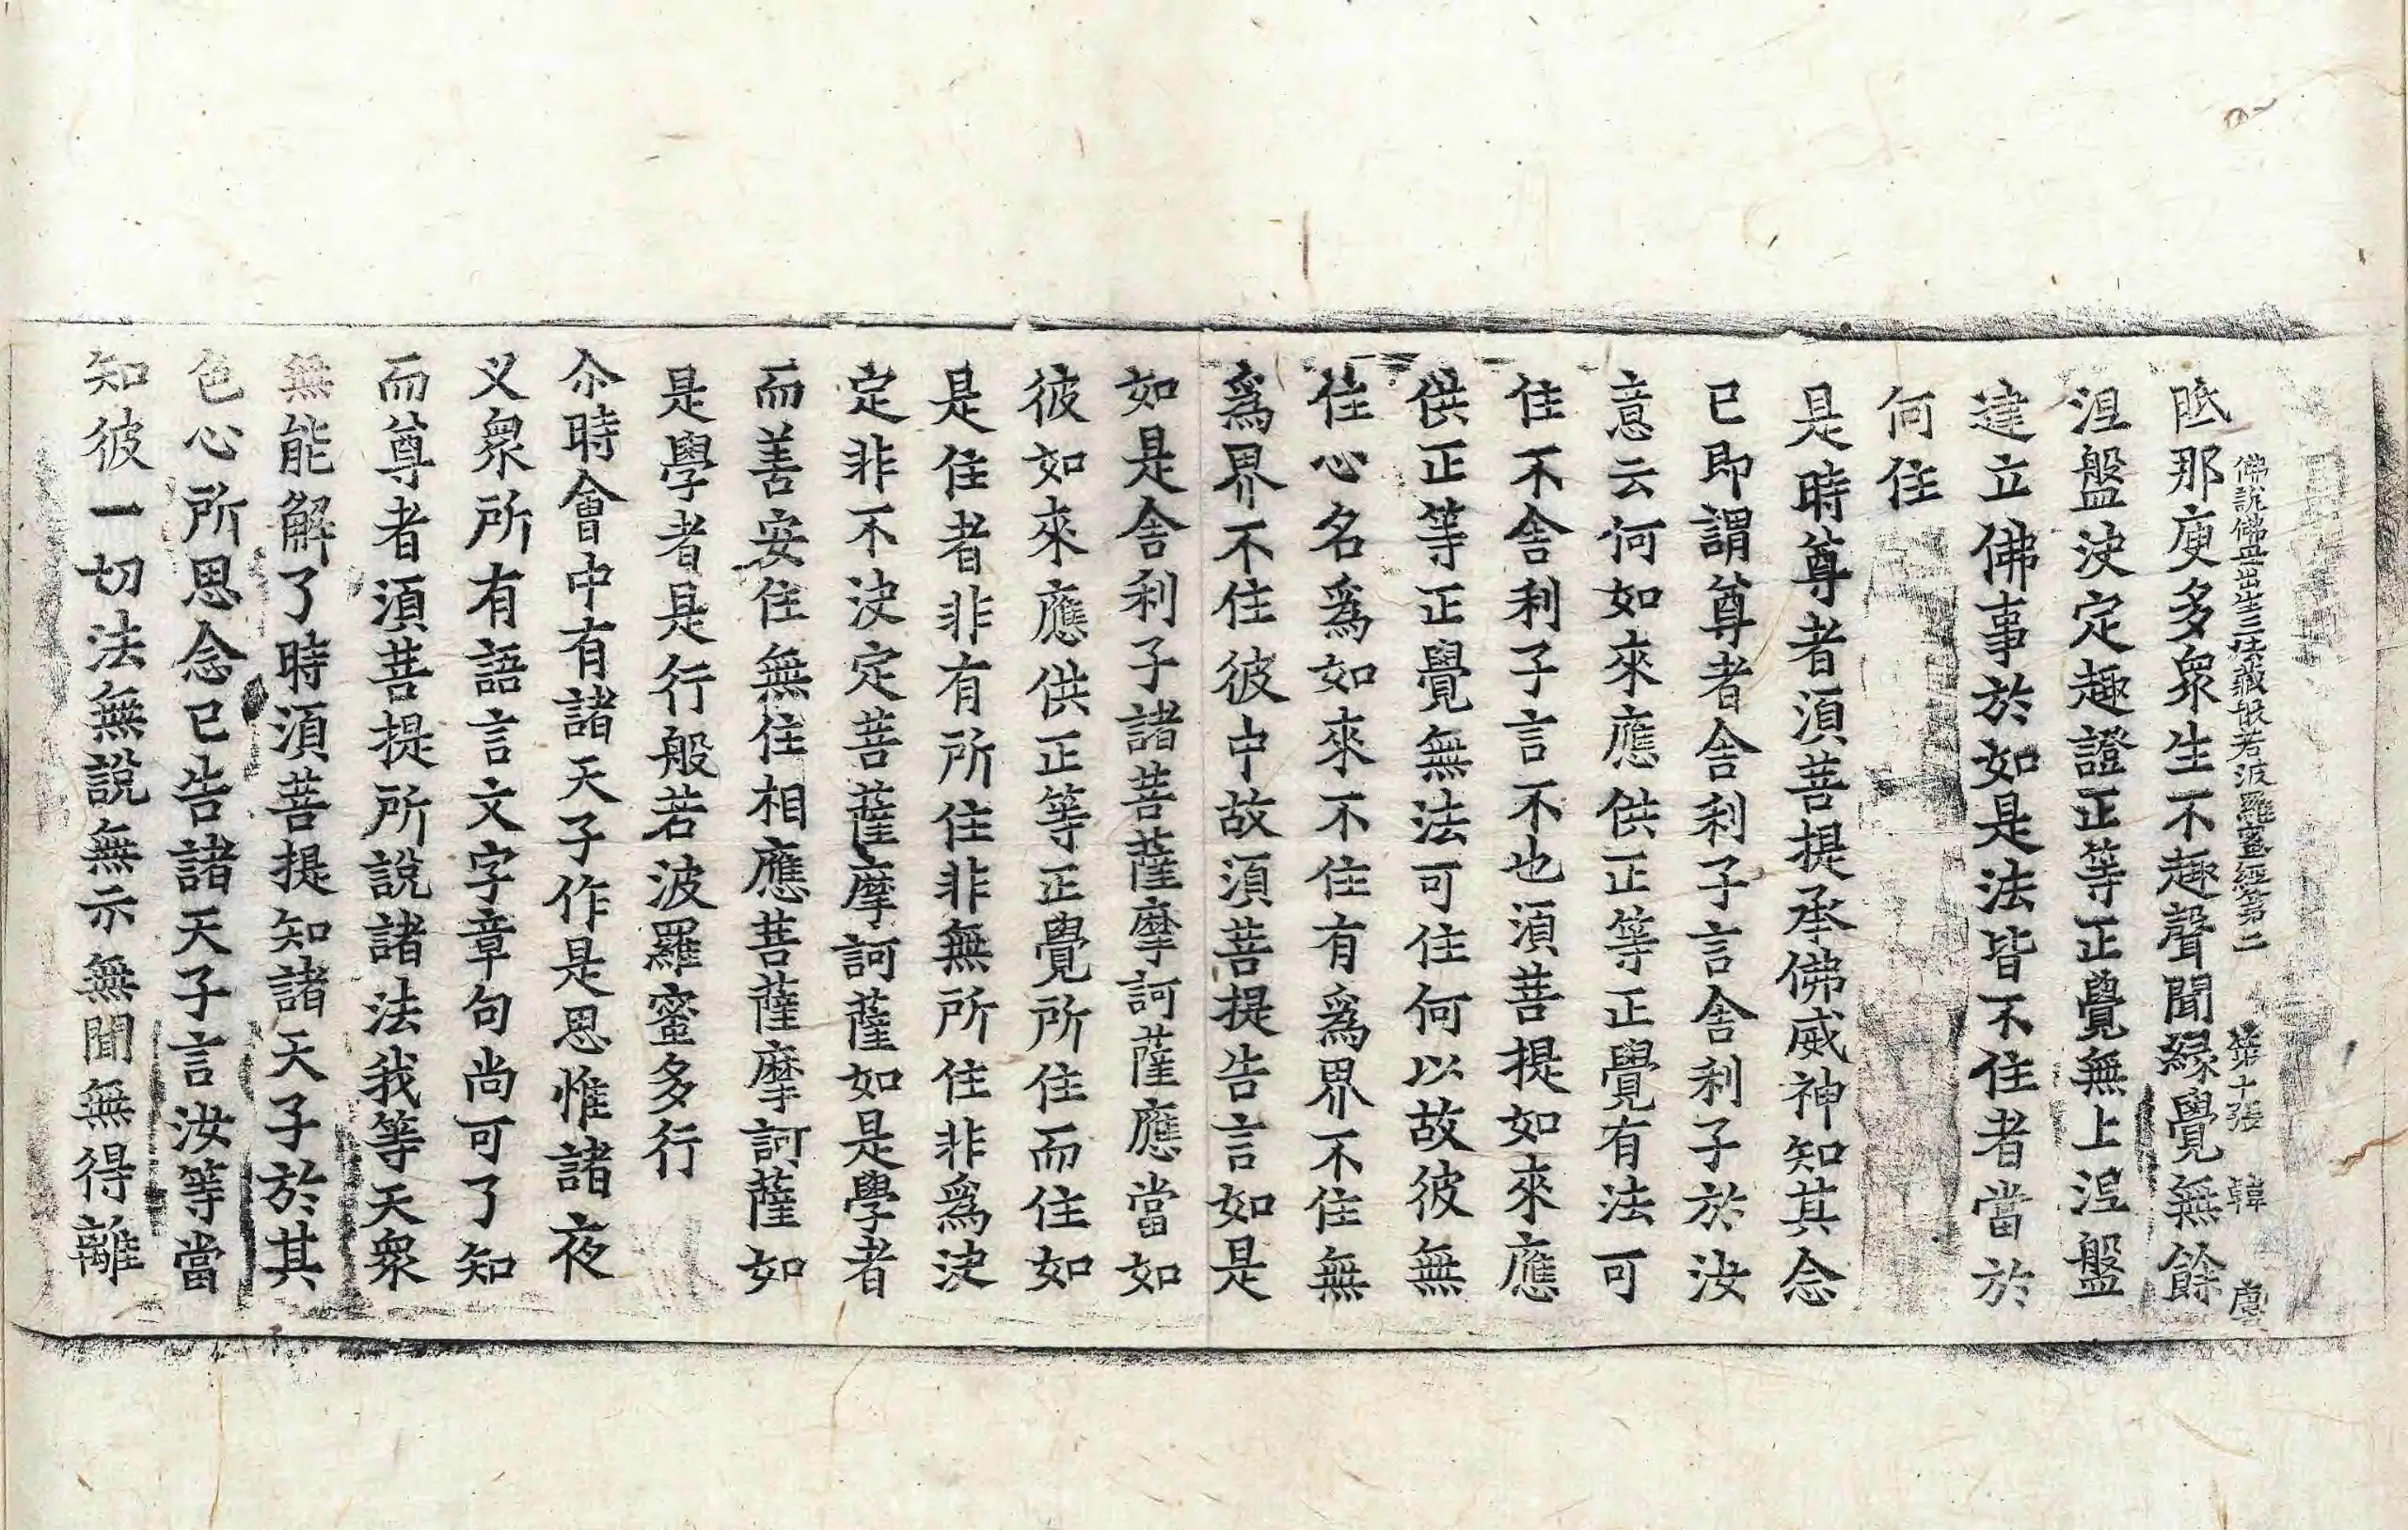 佛說佛母出生三法藏般若波羅蜜經第二 第十張 韓
胝那庾多衆生不趣聲聞緣覺無餘
涅盤決定趣證正等正覺無上涅盤
建立佛事於如是法皆不住者當於
何住
是時尊者須菩提承佛威神知其念
已即謂尊者舍利子言舍利子於汝
意云何如來應供正等正覺有法可
住不舍利子言不也須菩提如來應
供正等正覺無法可住何以故彼無
住心名爲如來不住有爲界不住無
爲界不住彼中故須菩提告言如是
如是舍利子諸菩薩摩訶薩應當如
彼如來應供正等正覺所住而住如
是住者非有所住非無所住非爲決
定非不決定菩薩摩訶薩如是學者
而善安住無住相應菩薩摩訶薩如
是學者是行般若波羅蜜多行
尒時會中有諸天子作是思惟諸夜
义衆所有語言文字章句尚可了知
而尊者須菩提所說諸法我等天衆
無能解了時須菩提知諸天子於其
色心所思念已告諸天子言汝等當
知彼一切法無說無示無聞無得離